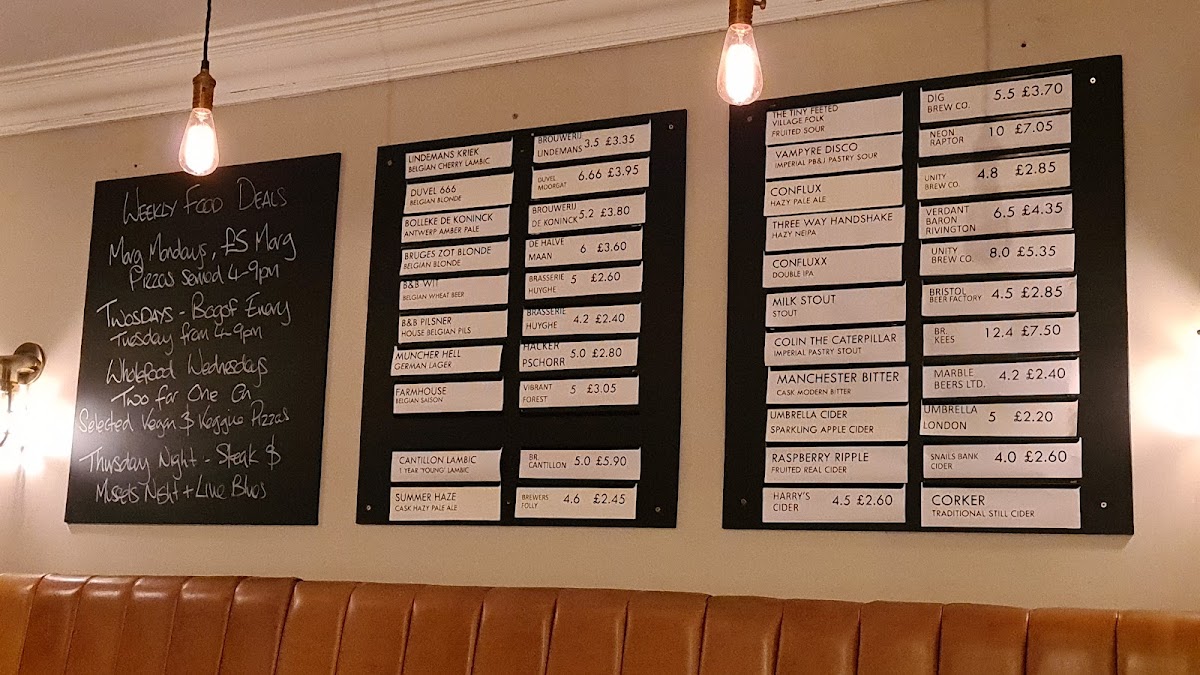 WEEKLY FOOD DEALS
Marg Mondays, £5 Marg
Pizzas served 4-9pm
TWOSDAYS - Bogof Every
Tuesday from 4-9pm
Wholefood Wednesdays
Two for One On
Selected Vegan & Veggie Pizzas
Thursday Night - Steak &
Mussels Night + Live Blues
LINDEMANS KRIEK
BELGIAN CHERRY LAMBIC
BROUWERIJ
LINDEMANS 3.5 £3.35
DUVEL 666
BELGIAN BLONDE
DUVEL
MOORGAT 6.66 £3.95
BOLLEKE DE KONINCK
ANTWERP AMBER PALE
BROUWERIJ
DE KONINCK 5.2 £3.80
BRUGES ZOT BLONDE
BELGIAN BLONDE
DE HALVE
MAAN 6 £3.60
B&B WIT
BELGIAN WHEAT BEER
BRASSERIE
HUYGHE 5 £2.60
B&B PILSNER
HOUSE BELGIAN PILS
BRASSERIE
HUYGHE 4.2 £2.40
MUNCHER HELL
GERMAN LAGER
HACKER
PSCHORR 5.0 £2.80
FARMHOUSE
BELGIAN SAISON
VIBRANT
FOREST 5 £3.05
CANTILLON LAMBIC
1 YEAR 'YOUNG' LAMBIC
BR.
CANTILLON 5.0 £5.90
SUMMER HAZE
CASK HAZY PALE ALE
BREWERS
FOLLY 4.6 £2.45
THE TINY FEETED
VILLAGE FOLK
FRUITED SOUR
DIG
BREW CO. 5.5 £3.70
VAMPYRE DISCO
IMPERIAL PB&J PASTRY SOUR
NEON
RAPTOR 10 £7.05
CONFLUX
HAZY PALE ALE
UNITY
BREW CO. 4.8 £2.85
THREE WAY HANDSHAKE
HAZY NEIPA
VERDANT
BARON
RIVINGTON 6.5 £4.35
CONFLUXX
DOUBLE IPA
UNITY
BREW CO. 8.0 £5.35
MILK STOUT
STOUT
BRISTOL
BEER FACTORY 4.5 £2.85
COLIN THE CATERPILLAR
IMPERIAL PASTRY STOUT
BR.
KEES 12.4 £7.50
MANCHESTER BITTER
CASK MODERN BITTER
MARBLE
BEERS LTD. 4.2 £2.40
UMBRELLA CIDER
SPARKLING APPLE CIDER
UMBRELLA
LONDON 5 £2.20
RASPBERRY RIPPLE
FRUITED REAL CIDER
SNAILS BANK
CIDER 4.0 £2.60
HARRY'S
CIDER 4.5 £2.60
CORKER
TRADITIONAL STILL CIDER